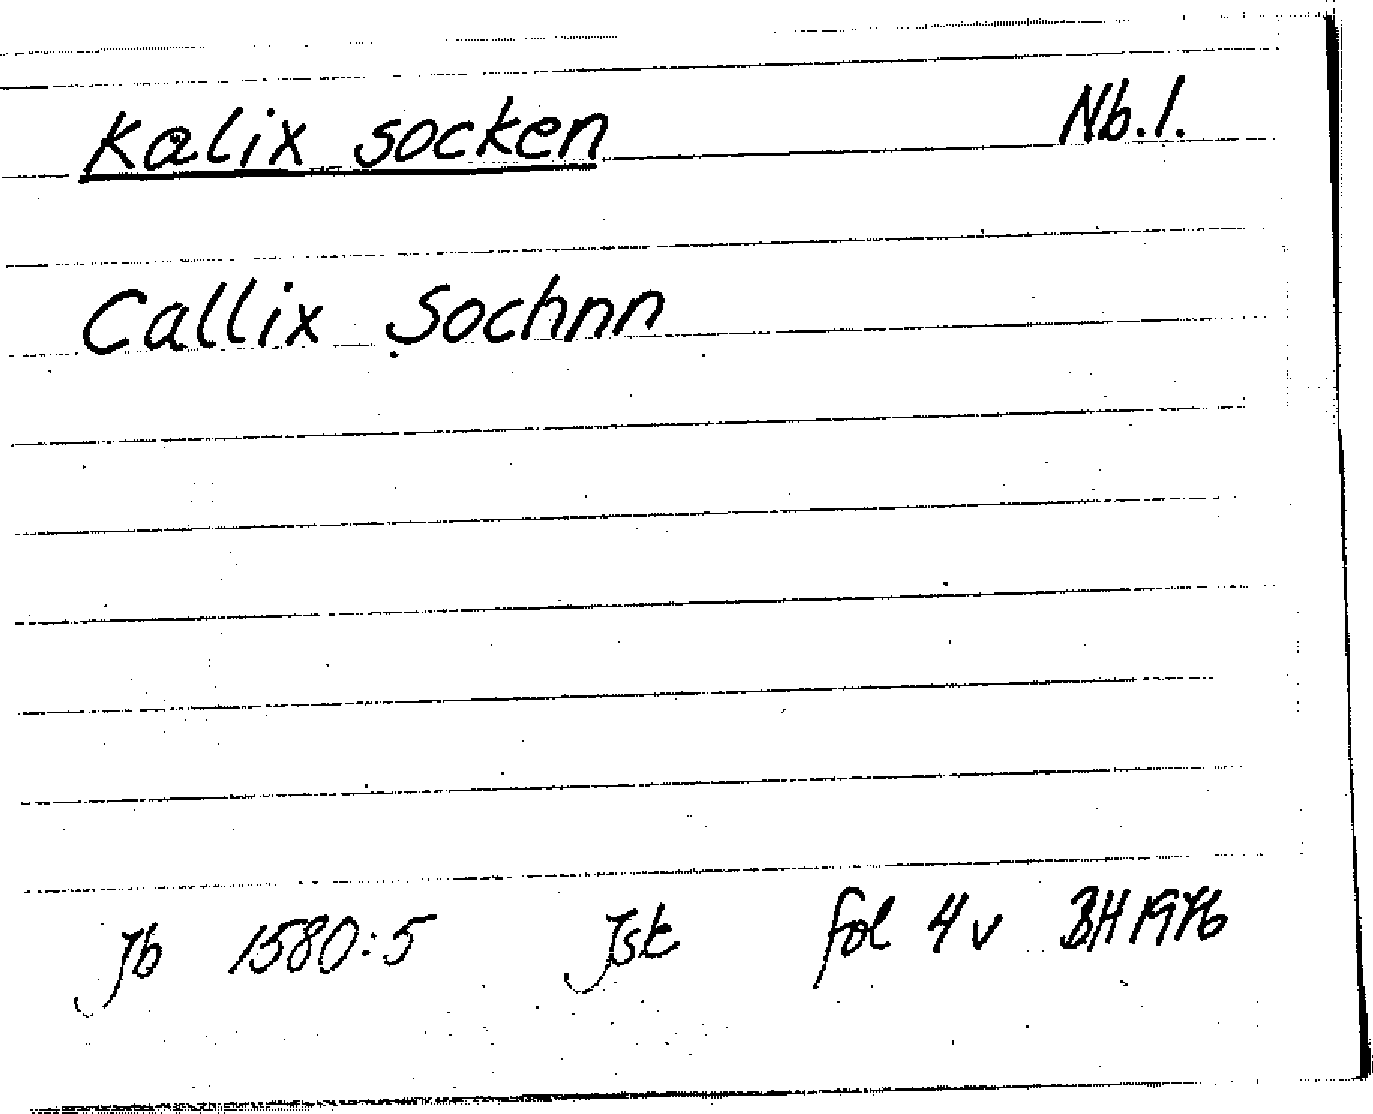 Kalix socken Nb.l.
Callix Sochnn
Jb 1580:5 Jsk fol 4v BH 1976